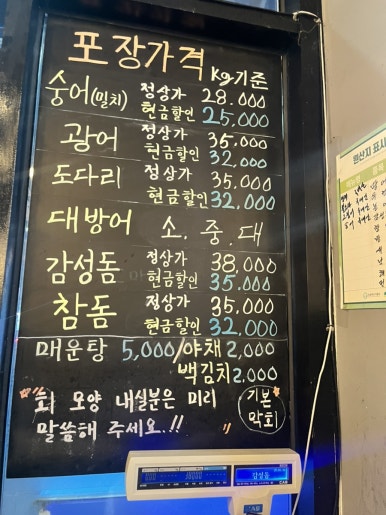 포장가격 Kg기준
숭어(밀치) 정상가 28.000
현금할인 25.000
광어 정상가 35,000
현금할인 32.000
도다리 정상가 35,000
현금할인 32,000
대방어 소.중.대
감성돔 정상가 38,000
현금할인 35.000
참돔 정상가 35,000
현금할인 32,000
매운탕 5,000/야채 2,000
백김치 2.000
"회 모양 내실분은 미리
말씀해 주세요.!!
기본
막회
원산지 표시
감성돔
CAS